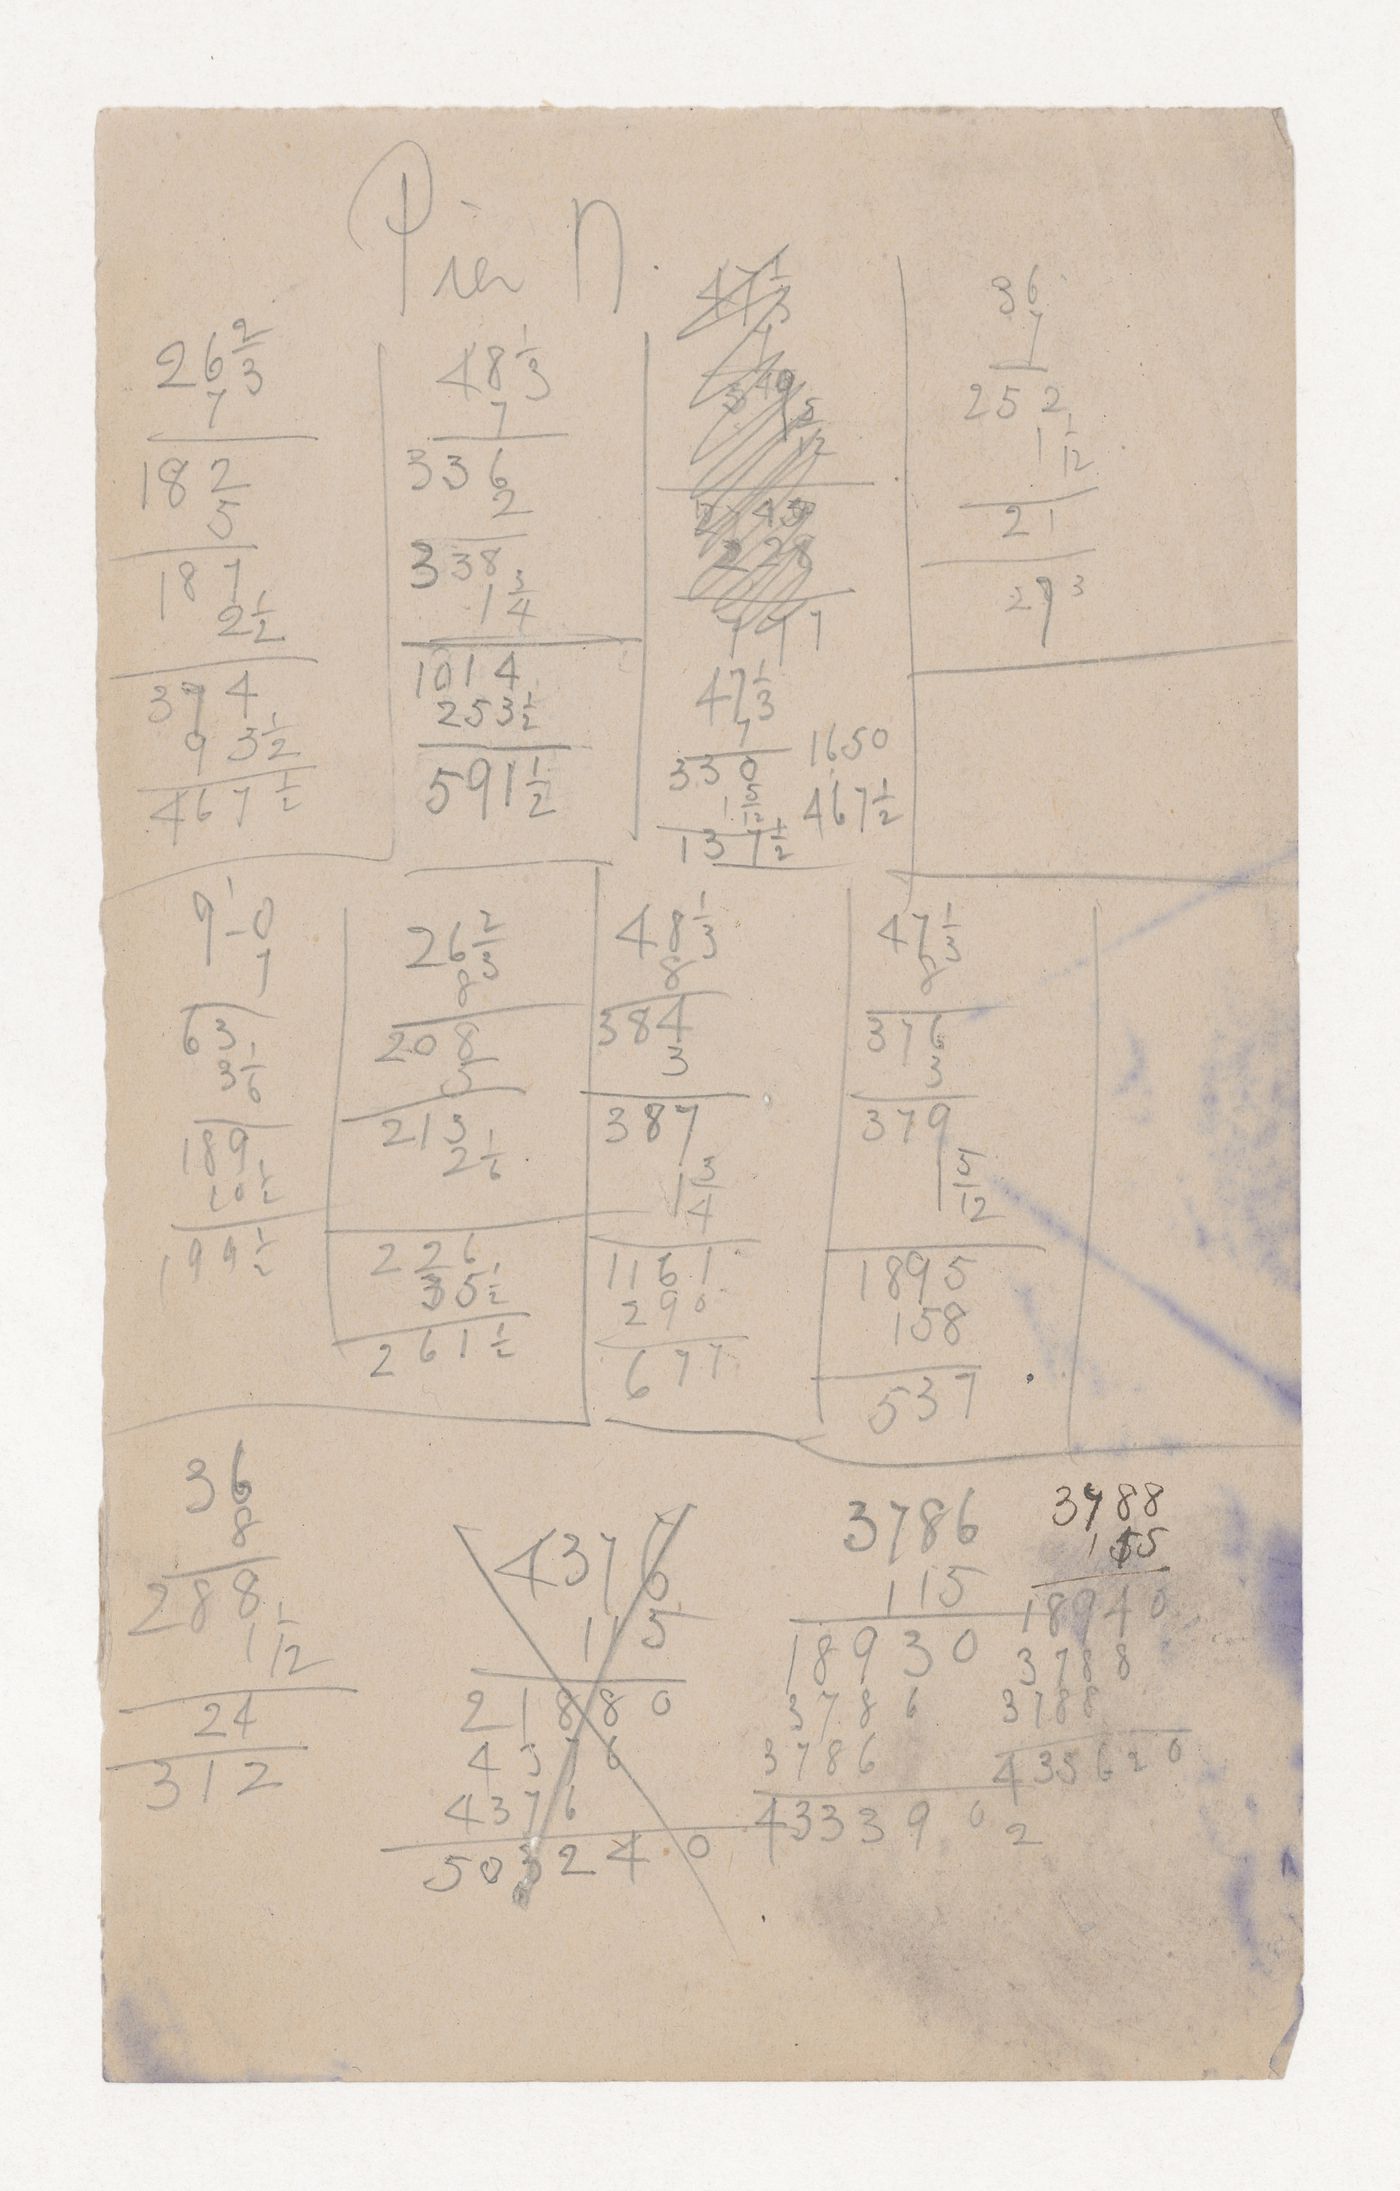 Pier N.
26 2/3
7
182
5
187
2 1/2
374
93 1/2
467 1/2
48 1/3
7
336
2
338
1 3/4
1014
253 1/2
591 1/2
47 1/3
7
330
1 5/12
137 1/2
1650
467 1/2
36
7
252
1 1/12
21
273
63
3 1/6
189
10 1/2
199 1/2
26 2/3
8
208
5
213
2 1/6
226
35 1/2
261 1/2
48 1/3
8
384
3
387
1 3/4
1161
290
677
47 1/3
8
376
3
379
1 5/12
1895
158
537
36
8
288
1 1/12
24
312
4376
115
21880
4376
4376
503240
3786
115
18930
3786
3786
433390
3788
115
18940
3788
3788
435620
2